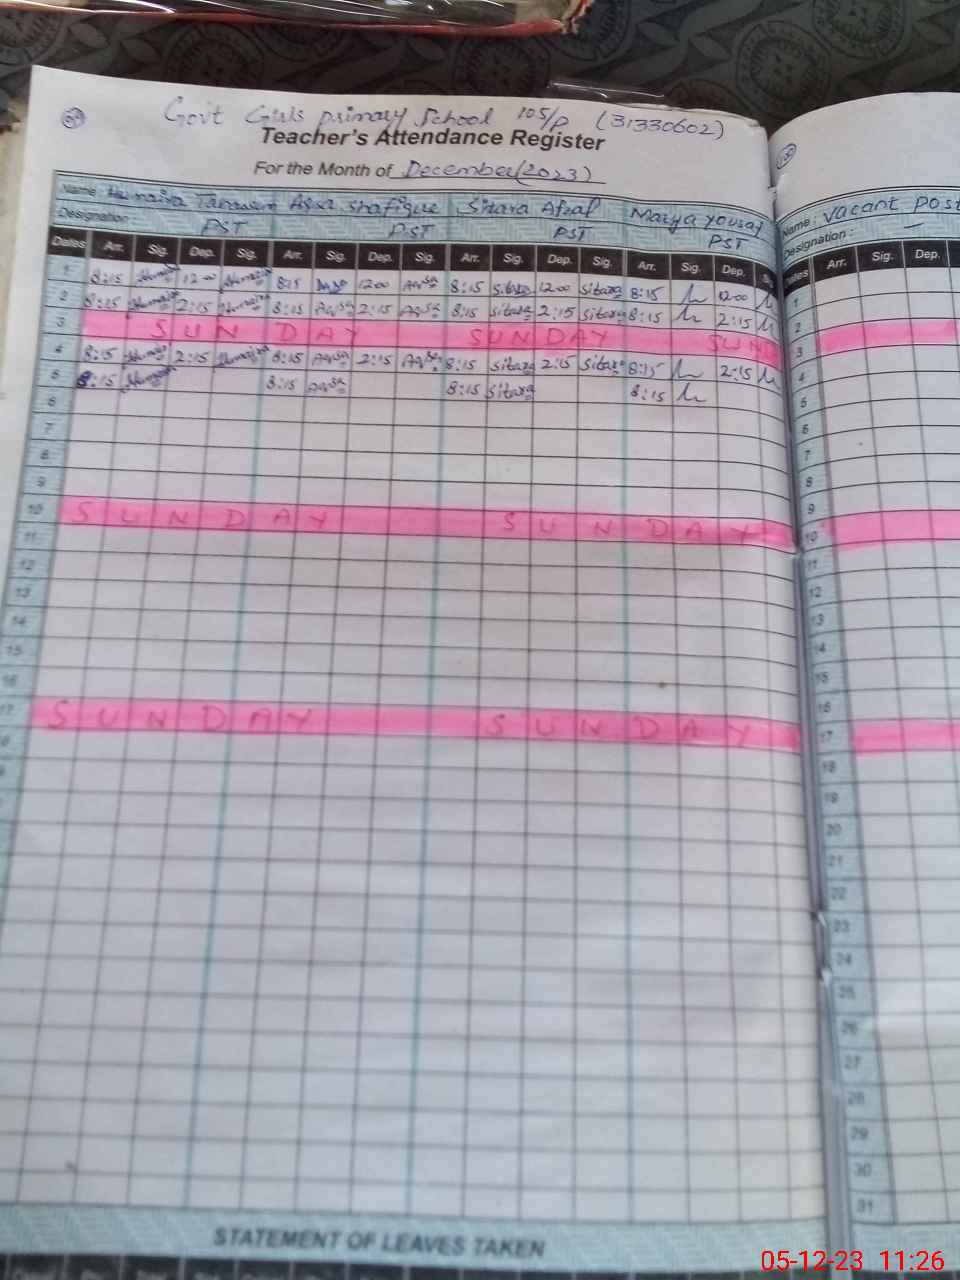 Govt Girls primary School 105/P (31330602)
Teacher's Attendance Register
For the Month of December(2023)
Name: Humaira Tabassum Aqsa shafique Sitara Afzal Marya yousaf
Designation: PST PST PST PST
Dates Arr. Sig. Dep. Sig. Arr. Sig. Dep. Sig. Arr. Sig. Dep. Sig. Arr. Sig. Dep.
1 8:15 Humaira 12:00 Humaira 8:15 12:00 Aqsa 8:15 Sitara 12:00 Sitara 8:15 12:00
2 8:15 Humaira 2:15 Humaira 8:15 Aqsa 2:15 Aqsa 8:15 Sitara 2:15 Sitara 8:15 2:15
3 SUNDAY SUNDAY SUN
4 8:15 Humaira 2:15 Humaira 8:15 Aqsa 2:15 Aqsa 8:15 Sitara 2:15 Sitara 8:15 2:15
5 8:15 Humaira 8:15 Aqsa 8:15 Sitara 8:15
6
7
8
9
10 SUNDAY SUNDAY
11
12
13
14
15
16
17 SUNDAY SUNDAY
STATEMENT OF LEAVES TAKEN
Name: Vacant Post
Designation: —
Dates Arr. Sig. Dep.
1
2
3
4
5
6
7
8
9
10
11
12
13
14
15
16
17
18
19
20
21
22
23
24
25
26
27
28
29
30
31
05-12-23 11:26